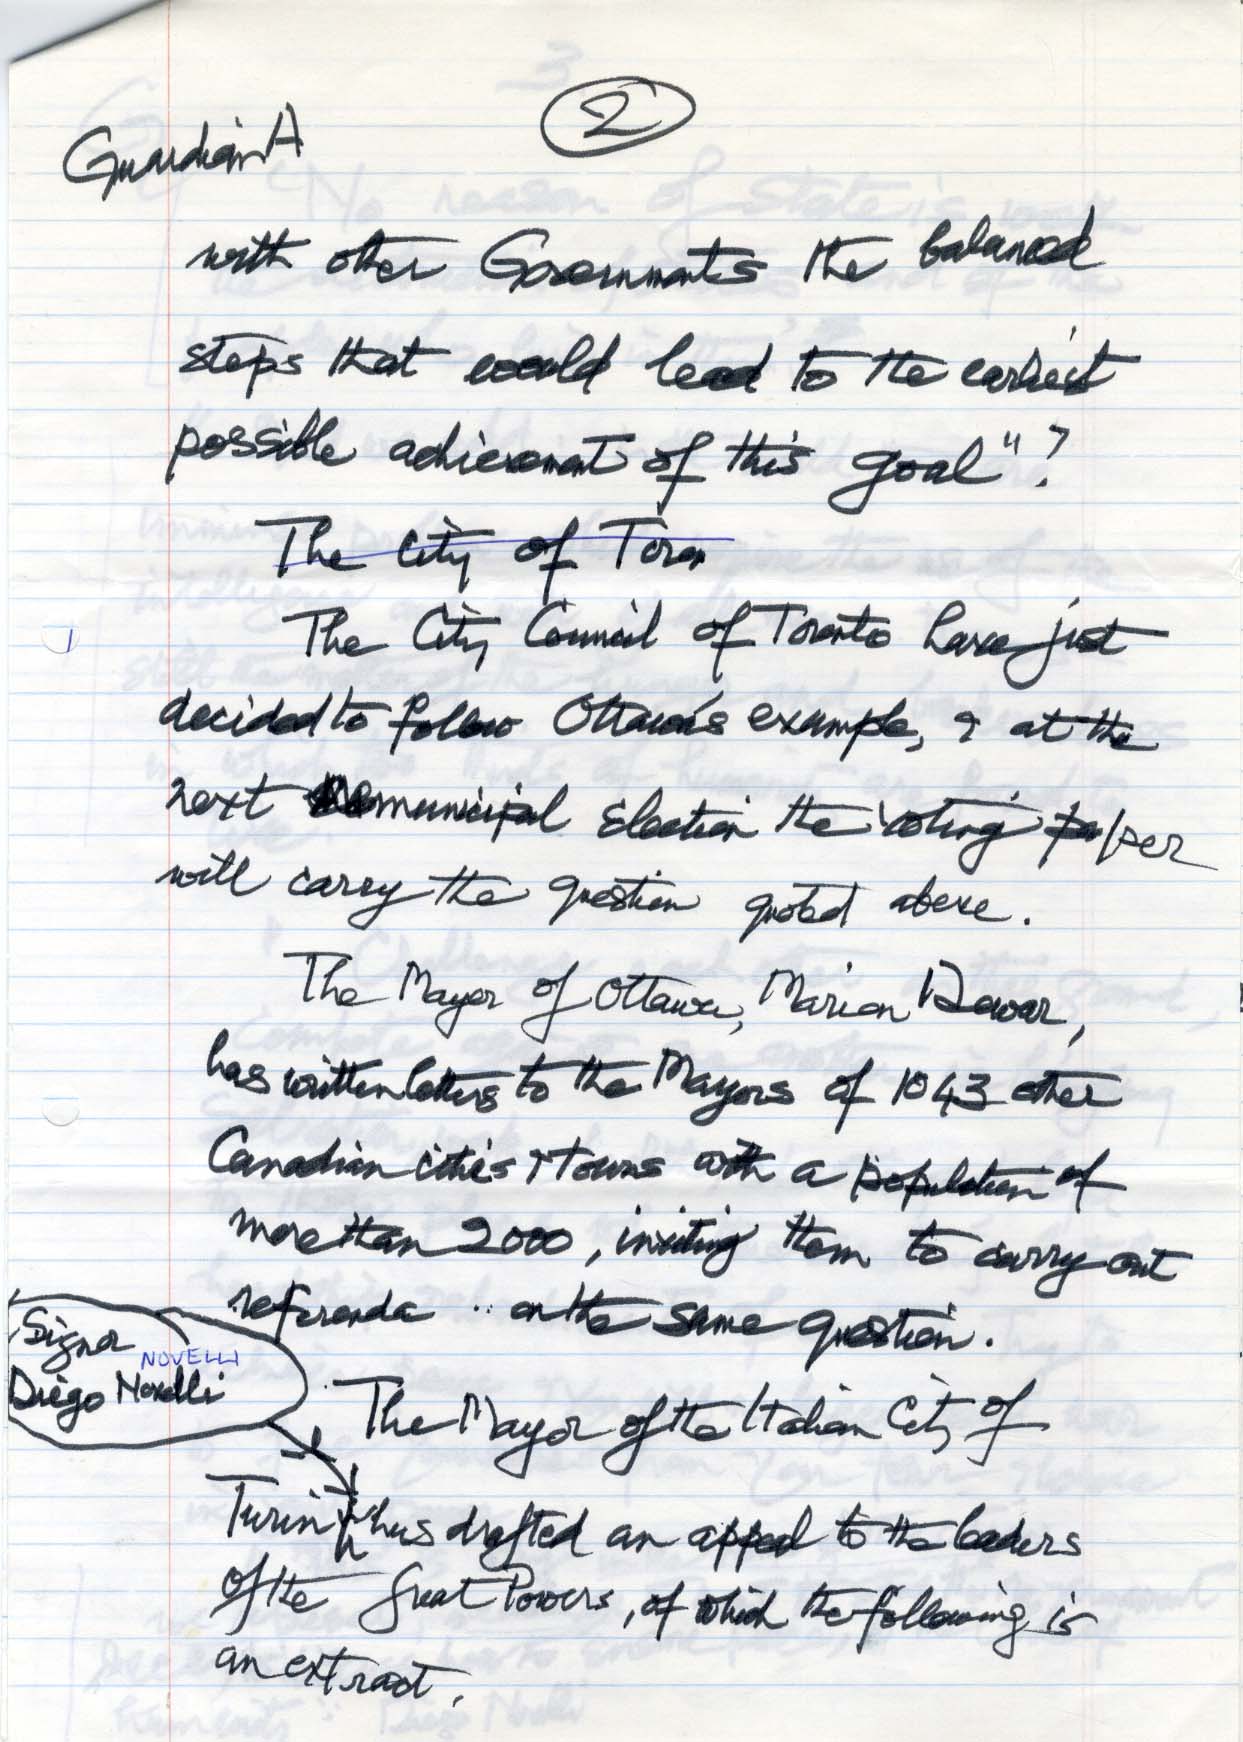 2
Guardian A
with other Governments the balanced
steps that would lead to the earliest
possible achievement of this goal"?
The City of Toron
The City Council of Toronto have just
decided to follow Ottawa's example, & at the
next municipal Election the voting paper
will carry the question quoted above.
The Mayor of Ottawa, Marion Dewar,
has written letters to the Mayors of 1043 other
Canadian cities & towns with a population of
more than 2000, inviting them to carry out
referenda on the same question.
Signor
NOVELLI
Diego Novelli
The Mayor of the Italian City of
Turin, has drafted an appeal to the leaders
of the Great Powers, of which the following is
an extract.